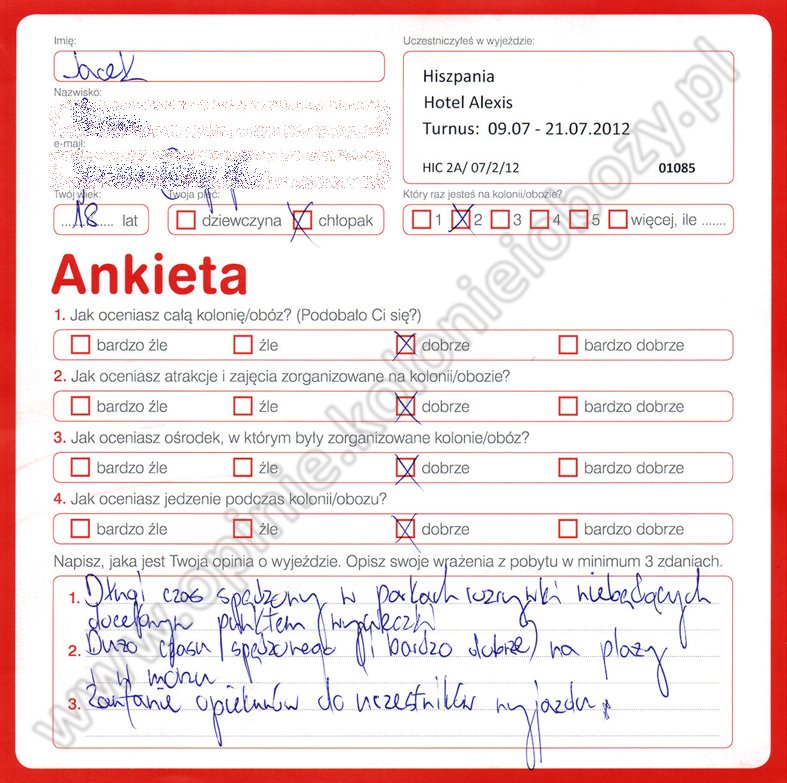 Imię:
Jacek
Uczestniczyłeś w wyjeździe:
Hiszpania
Hotel Alexis
Turnus: 09.07 - 21.07.2012
HIC 2A/ 07/2/12 01085
Nazwisko:
e-mail:
Twój wiek:
18 lat
Twoja płeć:
dziewczyna chłopak
Który raz jesteś na kolonii/obozie?
1 2 3 4 5 więcej, ile .......
Ankieta
1. Jak oceniasz całą kolonię/obóz? (Podobało Ci się?)
bardzo źle źle dobrze bardzo dobrze
2. Jak oceniasz atrakcje i zajęcia zorganizowane na kolonii/obozie?
bardzo źle źle dobrze bardzo dobrze
3. Jak oceniasz ośrodek, w którym były zorganizowane kolonie/obóz?
bardzo źle źle dobrze bardzo dobrze
4. Jak oceniasz jedzenie podczas kolonii/obozu?
bardzo źle źle dobrze bardzo dobrze
Napisz, jaka jest Twoja opinia o wyjeździe. Opisz swoje wrażenia z pobytu w minimum 3 zdaniach.
1. Długi czas spędzony w parkach rozrywki niebędących
docelowym punktem wycieczki
2. Dużo czasu spędzonego (i bardzo dobrze) na plaży
i w morzu
3. Zaufanie opiekunów do uczestników wyjazdu.
www.opinie.kolonieiobozy.pl